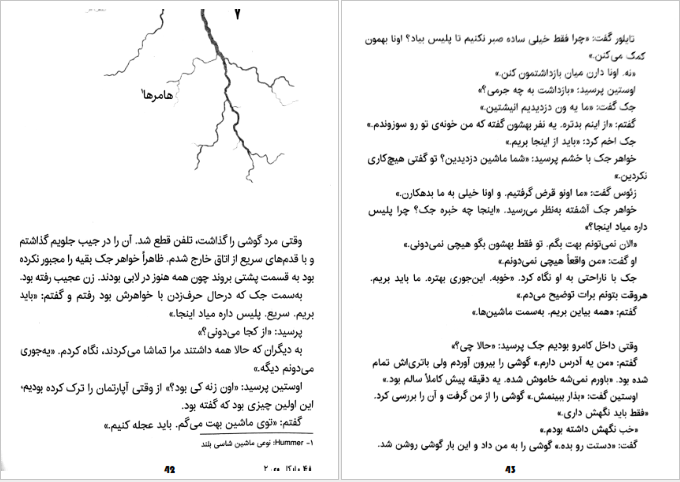 ۷
هامرها۱
وقتی مرد گوشی را گذاشت، تلفن قطع شد. آن را در جیب جلویم گذاشتم
و با قدم‌های سریع از اتاق خارج شدم. ظاهراً خواهر جک بقیه را مجبور نکرده
بود به قسمت پشتی بروند چون همه هنوز در لابی بودند. زن عجیب رفته بود.
به‌سمت جک که درحال حرف‌زدن با خواهرش بود رفتم و گفتم: «باید
بریم. سریع. پلیس داره میاد اینجا.»
پرسید: «از کجا می‌دونی؟»
به دیگران که حالا همه داشتند مرا تماشا می‌کردند، نگاه کردم. «یه‌جوری
می‌دونم دیگه.»
اوستین پرسید: «اون زنه کی بود؟» از وقتی آپارتمان را ترک کرده بودیم،
این اولین چیزی بود که گفته بود.
گفتم: «توی ماشین بهت می‌گم. باید عجله کنیم.»
۱- Hummer: نوعی ماشین شاسی بلند
42
تایلور گفت: «چرا فقط خیلی ساده صبر نکنیم تا پلیس بیاد؟ اونا بهمون
کمک می‌کنن.»
«نه. اونا دارن میان بازداشتمون کنن.»
اوستین پرسید: «بازداشت به چه جرمی؟»
جک گفت: «ما یه ون دزدیدیم انیشتین.»
گفتم: «از اینم بدتره. یه نفر بهشون گفته که من خونه‌ی تو رو سوزوندم.»
جک اخم کرد: «باید از اینجا بریم.»
خواهر جک با خشم پرسید: «شما ماشین دزدیدین؟ تو گفتی هیچ‌کاری
نکردین.»
زئوس گفت: «ما اونو قرض گرفتیم. و اونا خیلی به ما بدهکارن.»
خواهر جک آشفته به‌نظر می‌رسید. «اینجا چه خبره جک؟ چرا پلیس
داره میاد اینجا؟»
«الان نمی‌تونم بهت بگم. تو فقط بهشون بگو هیچی نمی‌دونی.»
او گفت: «من واقعاً هیچی نمی‌دونم.»
جک با ناراحتی به او نگاه کرد. «خوبه. این‌جوری بهتره. ما باید بریم.
هروقت بتونم برات توضیح می‌دم.»
گفتم: «همه بیاین بریم. به‌سمت ماشین‌ها.»
وقتی داخل کامرو بودیم جک پرسید: «حالا چی؟»
گفتم: «من یه آدرس دارم.» گوشی را بیرون آوردم ولی باتری‌اش تمام
شده بود. «باورم نمی‌شه خاموش شده. یه دقیقه پیش کاملاً سالم بود.»
اوستین گفت: «بذار ببینمش.» گوشی را از من گرفت و آن را بررسی کرد.
«فقط باید نگهش داری.»
«خب نگهش داشته بودم.»
گفت: «دستت رو بده.» گوشی را به من داد و این بار گوشی روشن شد.
43